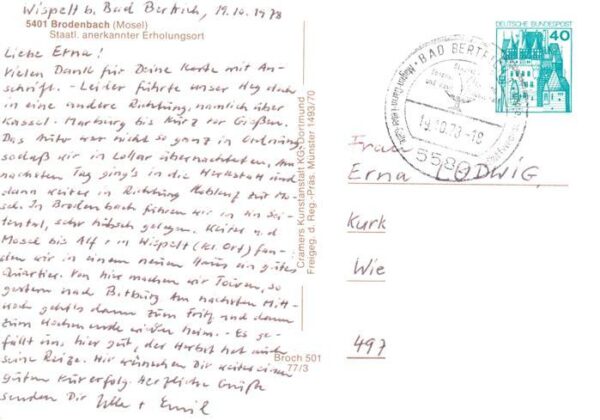 Wispelt b. Bad Bertrich, 19.10.1978
5401 Brodenbach (Mosel)
Staatl. anerkannter Erholungsort
Liebe Erna!
Vielen Dank für Deine Karte mit An-
schrift. - Leider führte unser Weg dann
in eine andere Richtung, nämlich über
Kassel - Marburg bis kurz vor Gießen.
Das Auto war nicht so ganz in Ordnung,
sodaß wir in Lollar übernachteten. Am
nächsten Tag ging's in die Werkstatt und
dann weiter in Richtung Koblenz zur Mo-
sel. In Brodenbach fuhren wir in ein Sei-
tental, sehr hübsch gelegen. Weiter a. d.
Mosel bis Alf, in Wispelt (kl. Ort) fan-
den wir in einem neuen Haus ein gutes
Quartier. Von hier machen wir Touren, so
gestern nach Bitburg. Am nächsten Mitt-
woch geht's dann zum Fritz und dann
zum Wochenende wieder heim. - Es ge-
fällt uns hier gut, der Herbst hat auch
seine Reize. Wir wünschen Dir weiter einen
guten Kurerfolg. Herzliche Grüße
senden Dir Ulla + Emil
Cramers Kunstanstalt KG, Dortmund
Freigeg. d. Reg.-Präs. Münster 1493/70
Broch 501
77/3
DEUTSCHE BUNDESPOST
40
BAD BERTRICH
19.10.78-18
5582
Frau
Erna LUDWIG,
Kurk
Wie
497